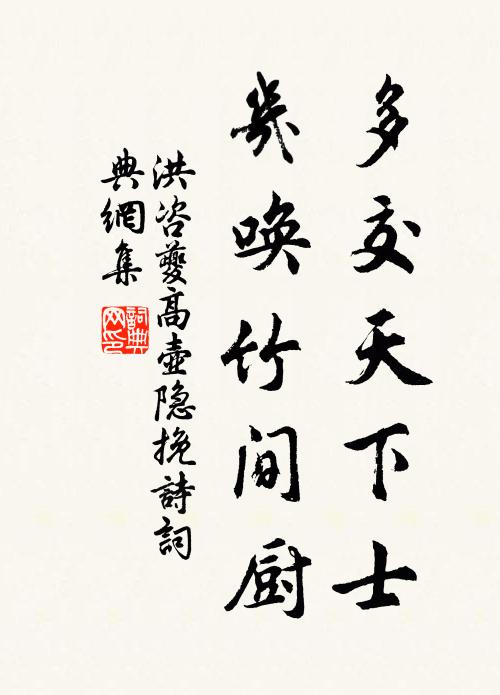 多交天下士
幾唤竹间厨
洪咨夔高壺隐挽詩詞
典網集
詞典
网印